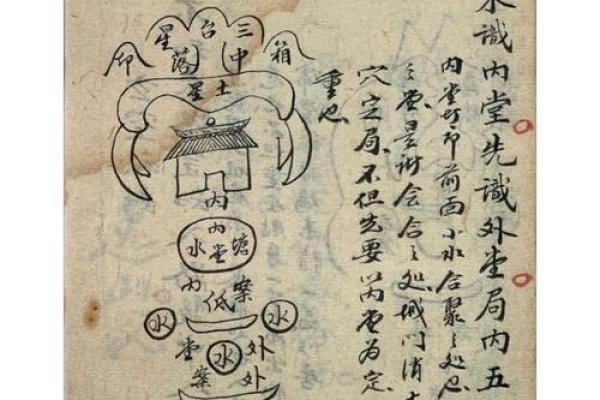 識内堂先識外堂局内五
内堂即前面小水合聚之处也
之堂是会合之处城门消
穴定局不但先要以内堂为定
重也
箱三台星印
中落
土星
内
内堂塘水
案低内
水 水
外水堂
外案